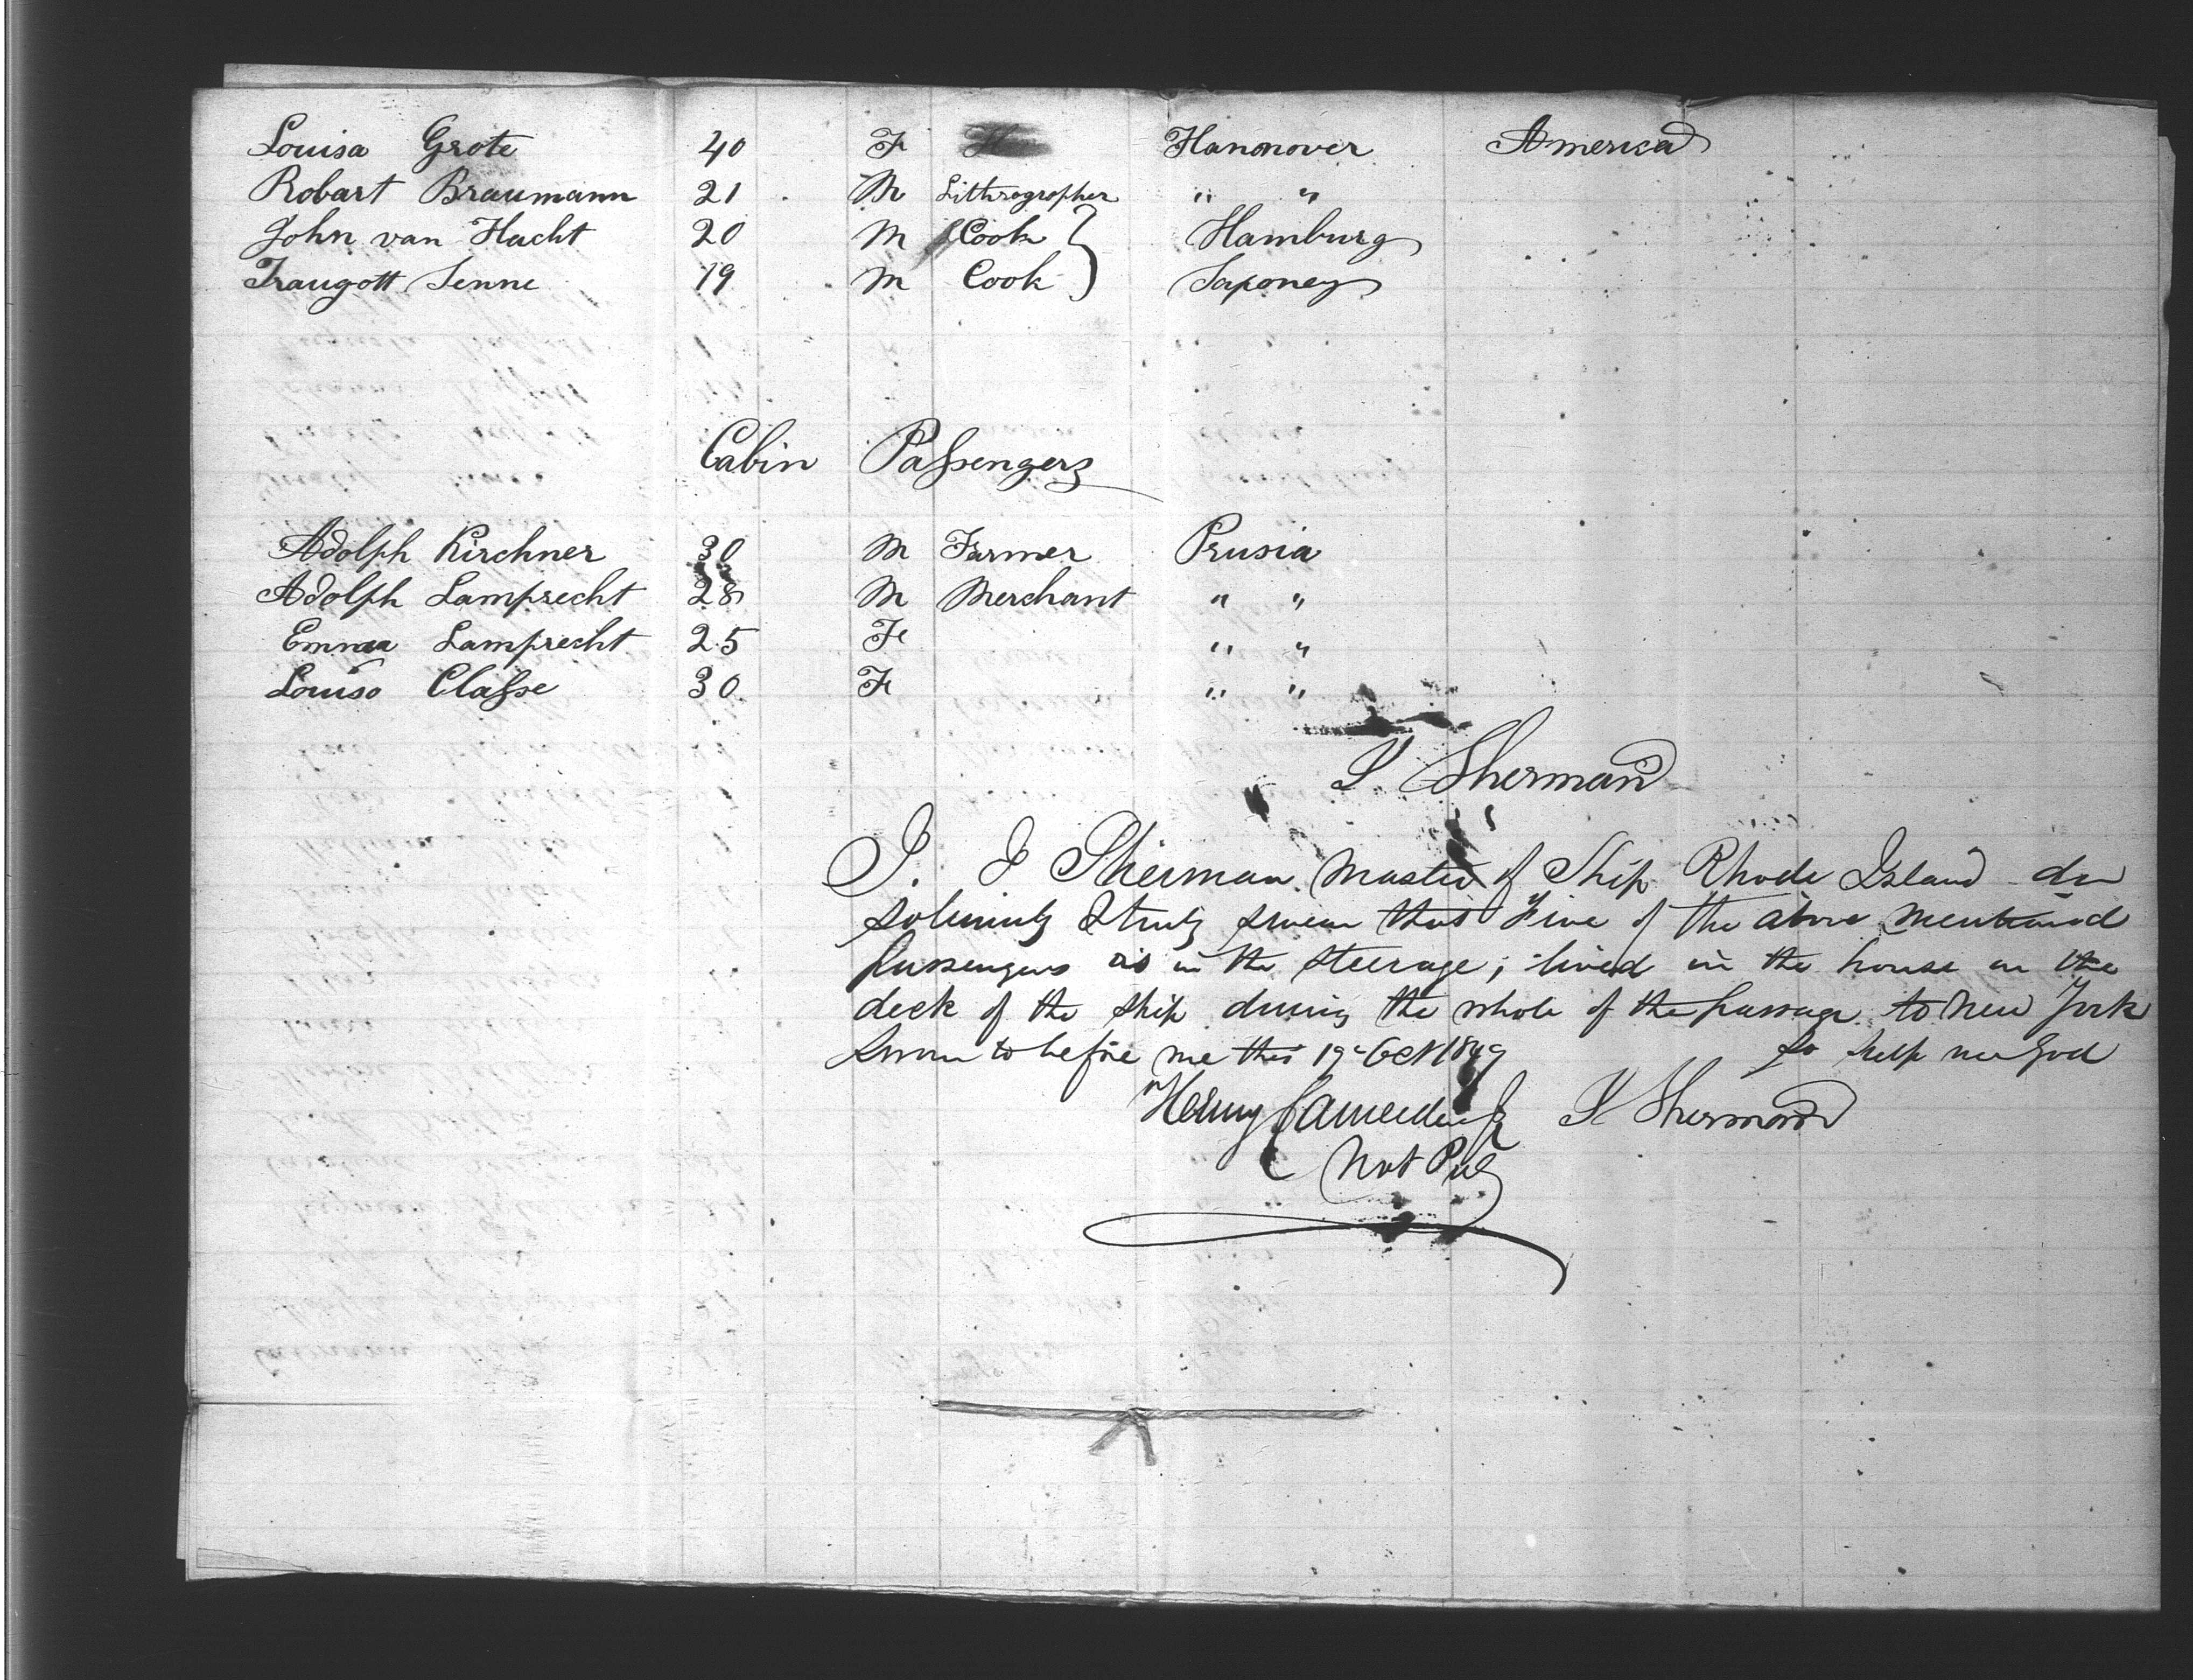 Louisa Grote 40 F Hannover America
Robart Braumann 21 M Lithrogropher " "
John van Hacht 20 M Cook } Hamburg
Traugott Senne 19 M Cook } Saxoney
Cabin Passengers
Adolph Kirchner 30 M Farmer Prusia
Adolph Lamprecht 28 M Merchant " "
Emma Lamprecht 25 F " "
Louiso Classe 30 F " "
S Sherman
I. S Sherman Master of Ship Rhode Island do
solemnly & truly swear that Five of the above mentioned
passengers as in the steerage; lived in the house on the
deck of the ship during the whole of the passage to New York
Sworn to before me this 19 Oct 1849 So help me God
Henry S Sherman
Not Pub